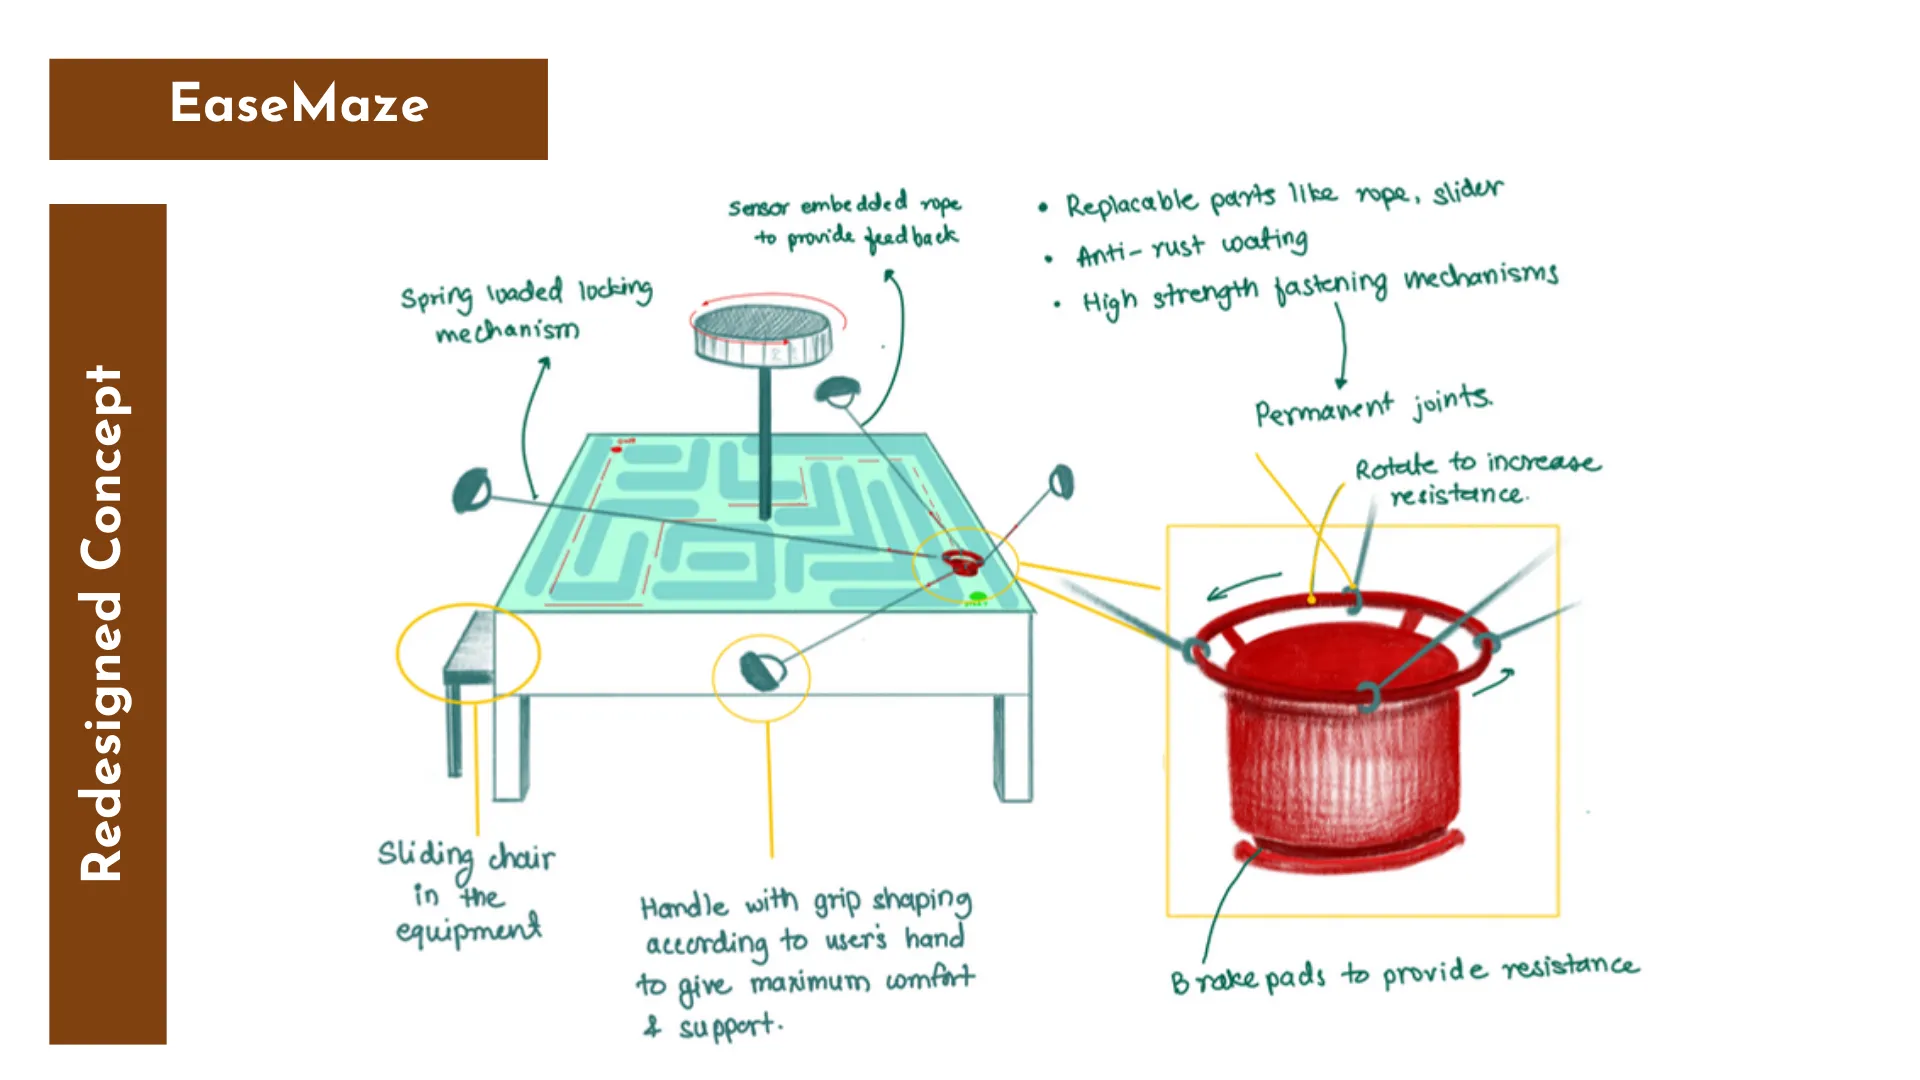 EaseMaze
Redesigned Concept
Sensor embedded rope
to provide feedback
• Replacable parts like rope, slider
• Anti-rust coating
• High strength fastening mechanisms
Spring loaded locking
mechanism
Permanent joints.
Rotate to increase
resistance.
Sliding chair
in the
equipment
Handle with grip shaping
according to user's hand
to give maximum comfort
& support.
Brake pads to provide resistance